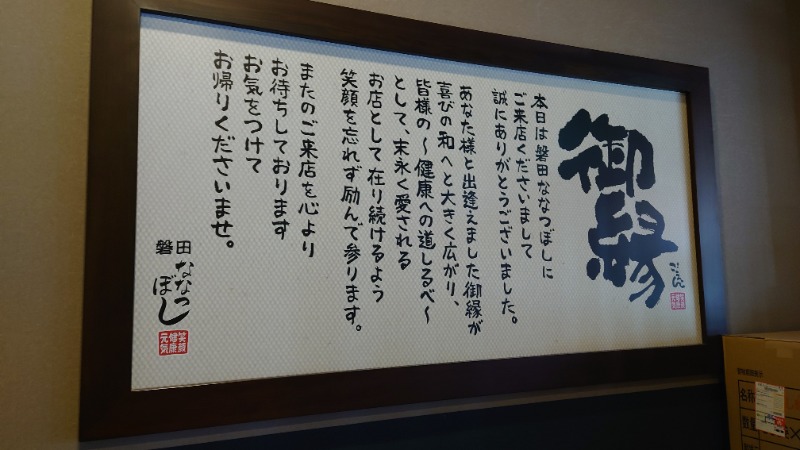 御縁
ごえん
本日は磐田ななつぼしに
ご来店くださいまして
誠にありがとうございました。
あなた様と出逢えました御縁が
喜びの和へと大きく広がり、
皆様の～健康への道しるべ～
として、末永く愛される
お店として在り続けるよう
笑顔を忘れず励んで参ります。
またのご来店を心より
お待ちしております
お気をつけて
お帰りくださいませ。
磐田
ななつ
ぼし
笑顔
健康
元気
名称
数量